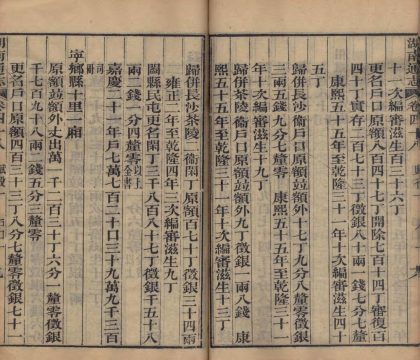 十一次編審滋生六丁
更名戶口原額八百四十七丁開除七百四十丁審復百
四十丁實存二百七十三丁徵銀四兩一錢七分七釐零
康熙五十五年至乾隆三十一年十次編審滋生四十
五丁
歸併茶陵衞戶口原額竝額外十九丁九分徵銀
三兩五錢九分七釐零 康熙五十五年至乾隆三十一
年十次編審滋生十丁
歸併衞戶口原額竝額外七丁徵銀一兩八錢 康
熙五十五年至乾隆三十一年十次編審滋生十一丁
歸併長沙茶陵二衞閑丁原額百七十丁徵銀三十四兩
雍正十一年至乾隆四年一次編審滋生九丁
闔縣民屯更名閑丁三千八百八十七丁徵銀千五十八
兩二錢一分四釐零以上全書
嘉慶二十一年戶七萬七百二十口三十九萬九千三百
司冊
寧鄉縣十里一廂
原額竝額外丈出萬一千二百三十丁六分一釐零徵銀
千七百九十八兩一錢五分三釐零
更名戶口原額四百三十二丁八分七釐零徵銀七十一